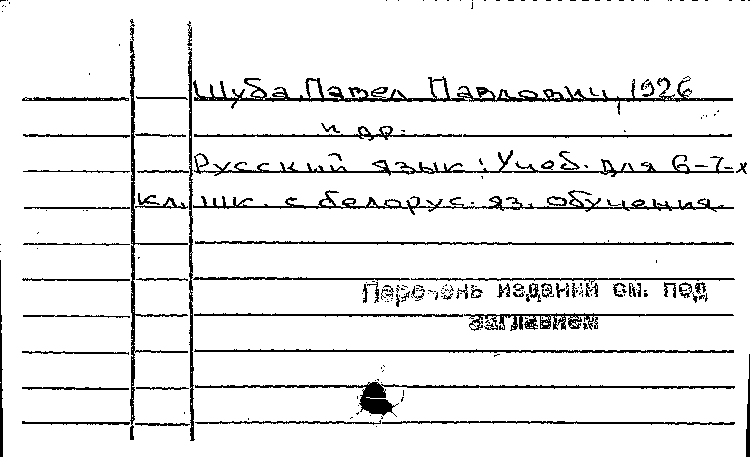 Шуба, Павел Павлович, 1926
и др.
Русский язык: Учеб. для 6-7-х
кл. шк. с белорус. яз. обучения.
Перечень изданий см. под
заглавием